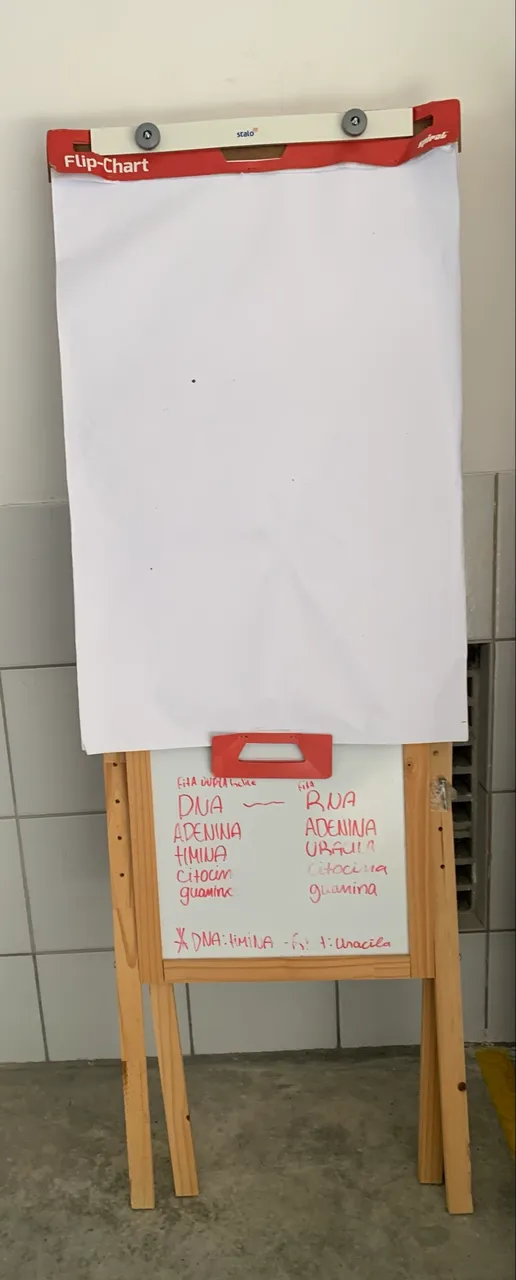 stalo
Flip-Chart
spiral
Fita dupla hélice
Fita
DNA — RNA
ADENINA ADENINA
tIMINA URACILA
citocin citocina
guanina guanina
* DNA: tIMINA - : Uracila